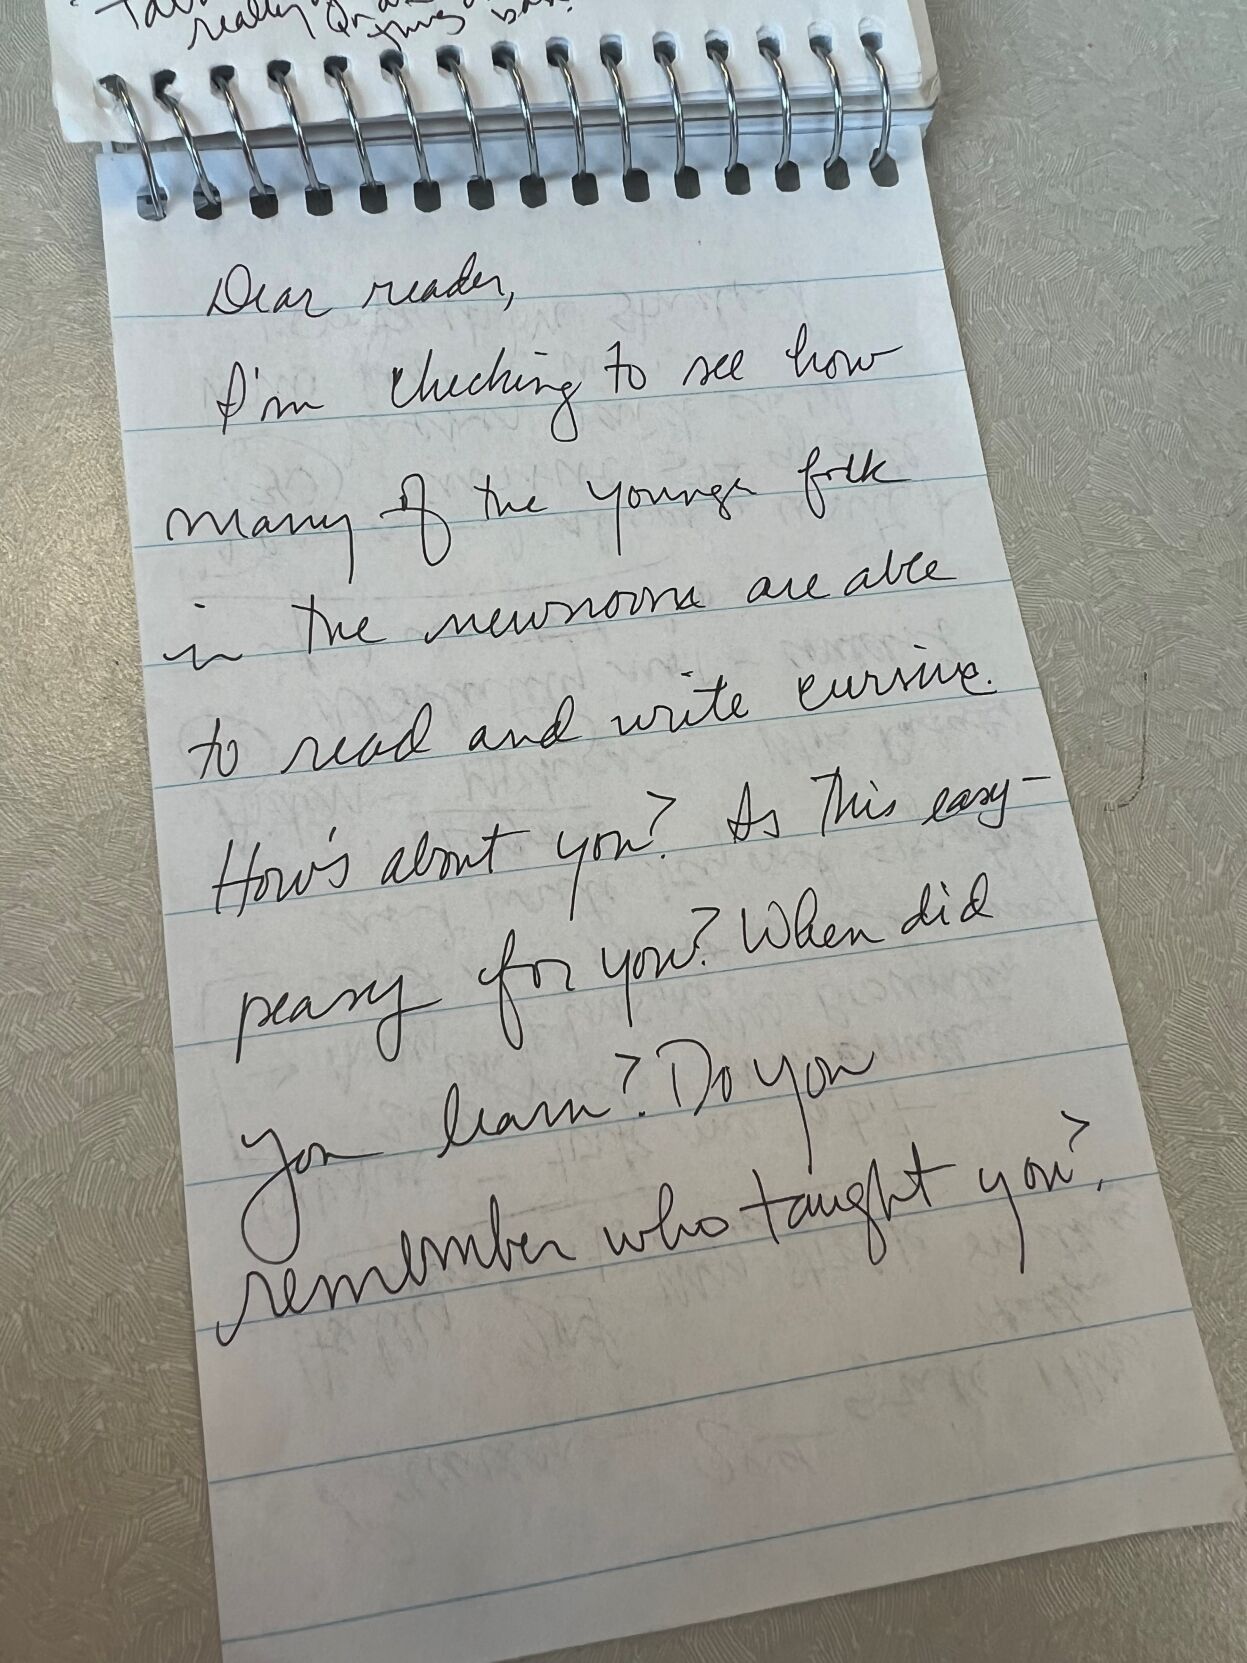 really
Dear reader,
I'm checking to see how
many of the younger folk
in the newsroom are able
to read and write cursive.
How's about you? Is this easy-
peasy for you? When did
you learn? Do you
remember who taught you?